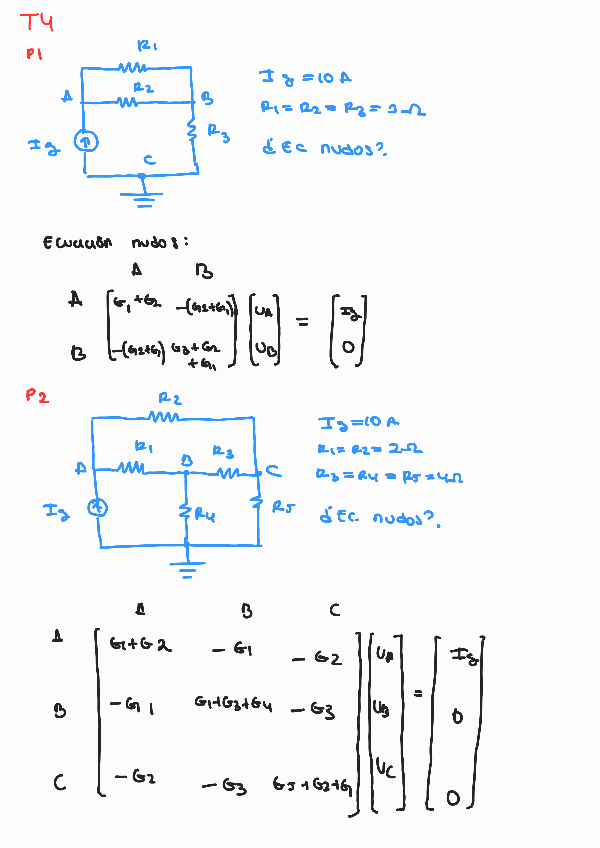 T4
P1
R1
R2
A
B
R3
Ig
C
Ig = 10 A
R1 = R2 = R3 = 1 Ω
¿Ec nudos?
Ecuación nudos:
A B
A G1+G2 -(G2+G1) UA = Ig
B -(G2+G1) G3+G2+G1 UB 0
P2
R2
R1
R3
A
B
C
Ig
R4
R5
Ig = 10 A
R1 = R2 = 2 Ω
R3 = R4 = R5 = 4 Ω
¿Ec. nudos?
A B C
A G1+G2 -G1 -G2 UA Ig
B -G1 G1+G3+G4 -G3 UB = 0
C -G2 -G3 G5+G2+G1 UC 0